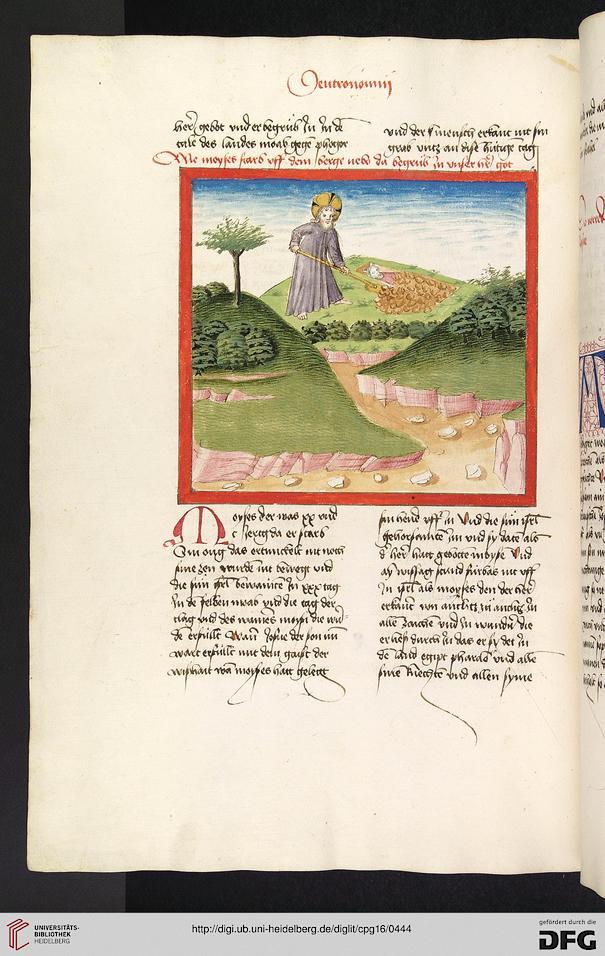 Deutronomij
herr gebot vnd er begrůb In In dē
tale des landes moab gegē phogor
vnd der mensch erkant nit sin
grab vntz an dise hütige tag
Als moyses starb vff dem berge nebo da begrůb in vnser her got
Moyses der was xx vnd
c Jerig da er starb
Sin oug das ertunckelt nit noch
sine zen wurde nit bewegt vnd
die sün isrl bewainte In xxx tag
In de selben moab vnd die tag der
clag vnd des waines moysi die wur
de erfüllt Wan Josue der son nun
wart erfüllt mit dem gaist der
wißhait wan moyses hatt gelegt
sin hend vff In Vnd die sün isrl
gehorsamte Im vnd sy date als
der her hatt gebotte moyse Vnd
wissag stund fürbas nit vff
In isrl als moyses den der her
erkant von antlütz zu antlütz In
alle zaichē vnd In wundrē die
er hieß durch In das er sy det In
de land egipt pharaō vnd alle
sinen knechte vnd allem syme
UNIVERSITÄTS-
BIBLIOTHEK
HEIDELBERG
http://digi.ub.uni-heidelberg.de/diglit/cpg16/0444
gefördert durch die
DFG